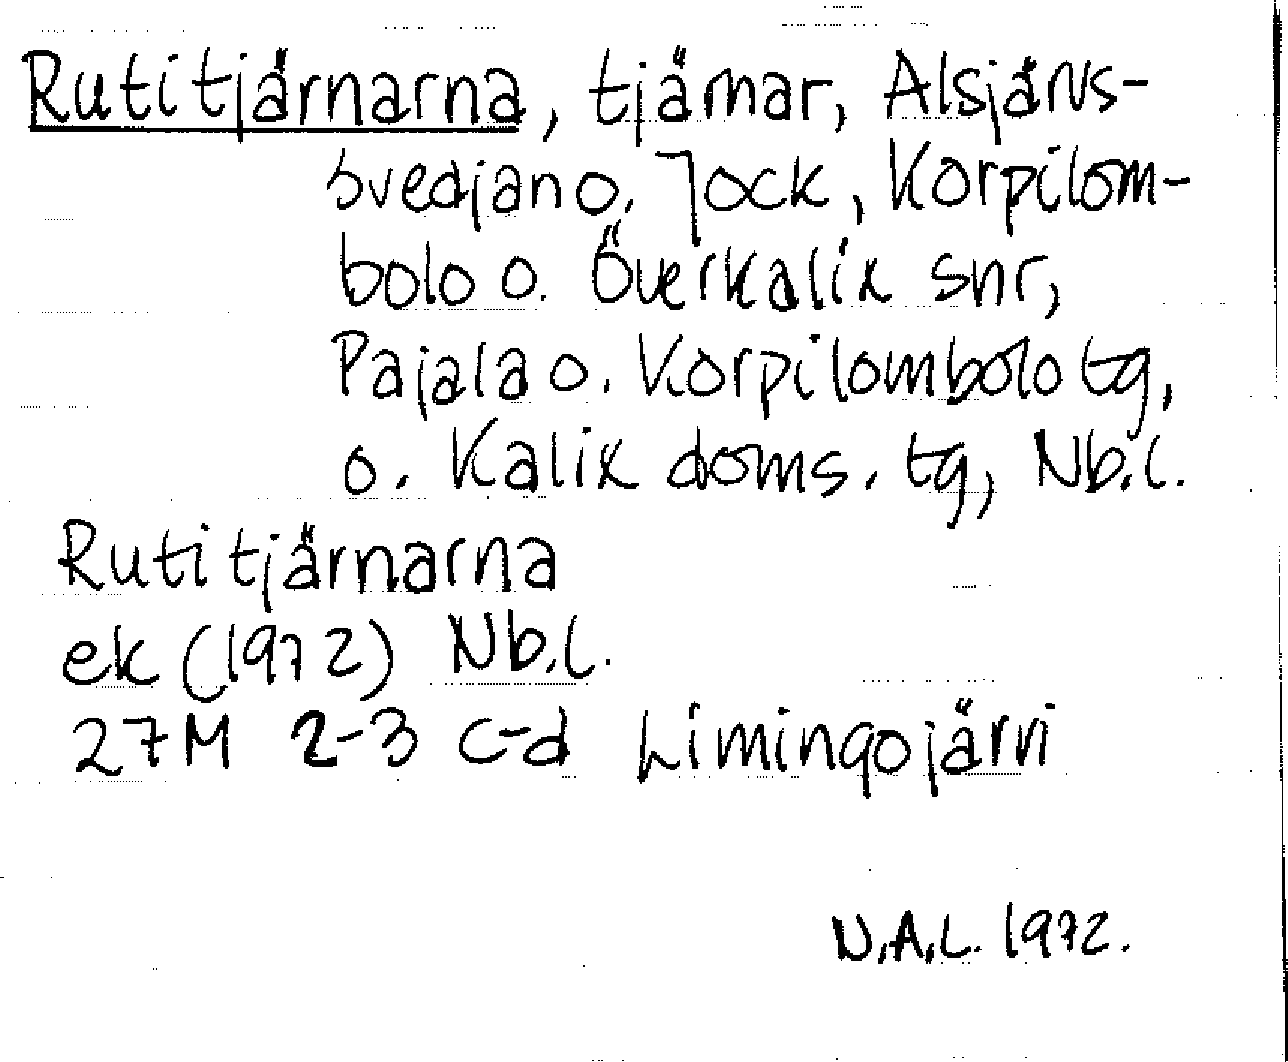 Rutitjärnarna, tjärnar, Alsjärvs-
svedjan o. Jock, Korpilom-
bolo o. Överkalix snr,
Pajala o. Korpilombolo tg,
o. Kalix doms. tg, Nb.l.
Rutitjärnarna
ek (1972) Nb.l.
27M 2-3 c-d Limingojärvi
N.A.L. 1972.